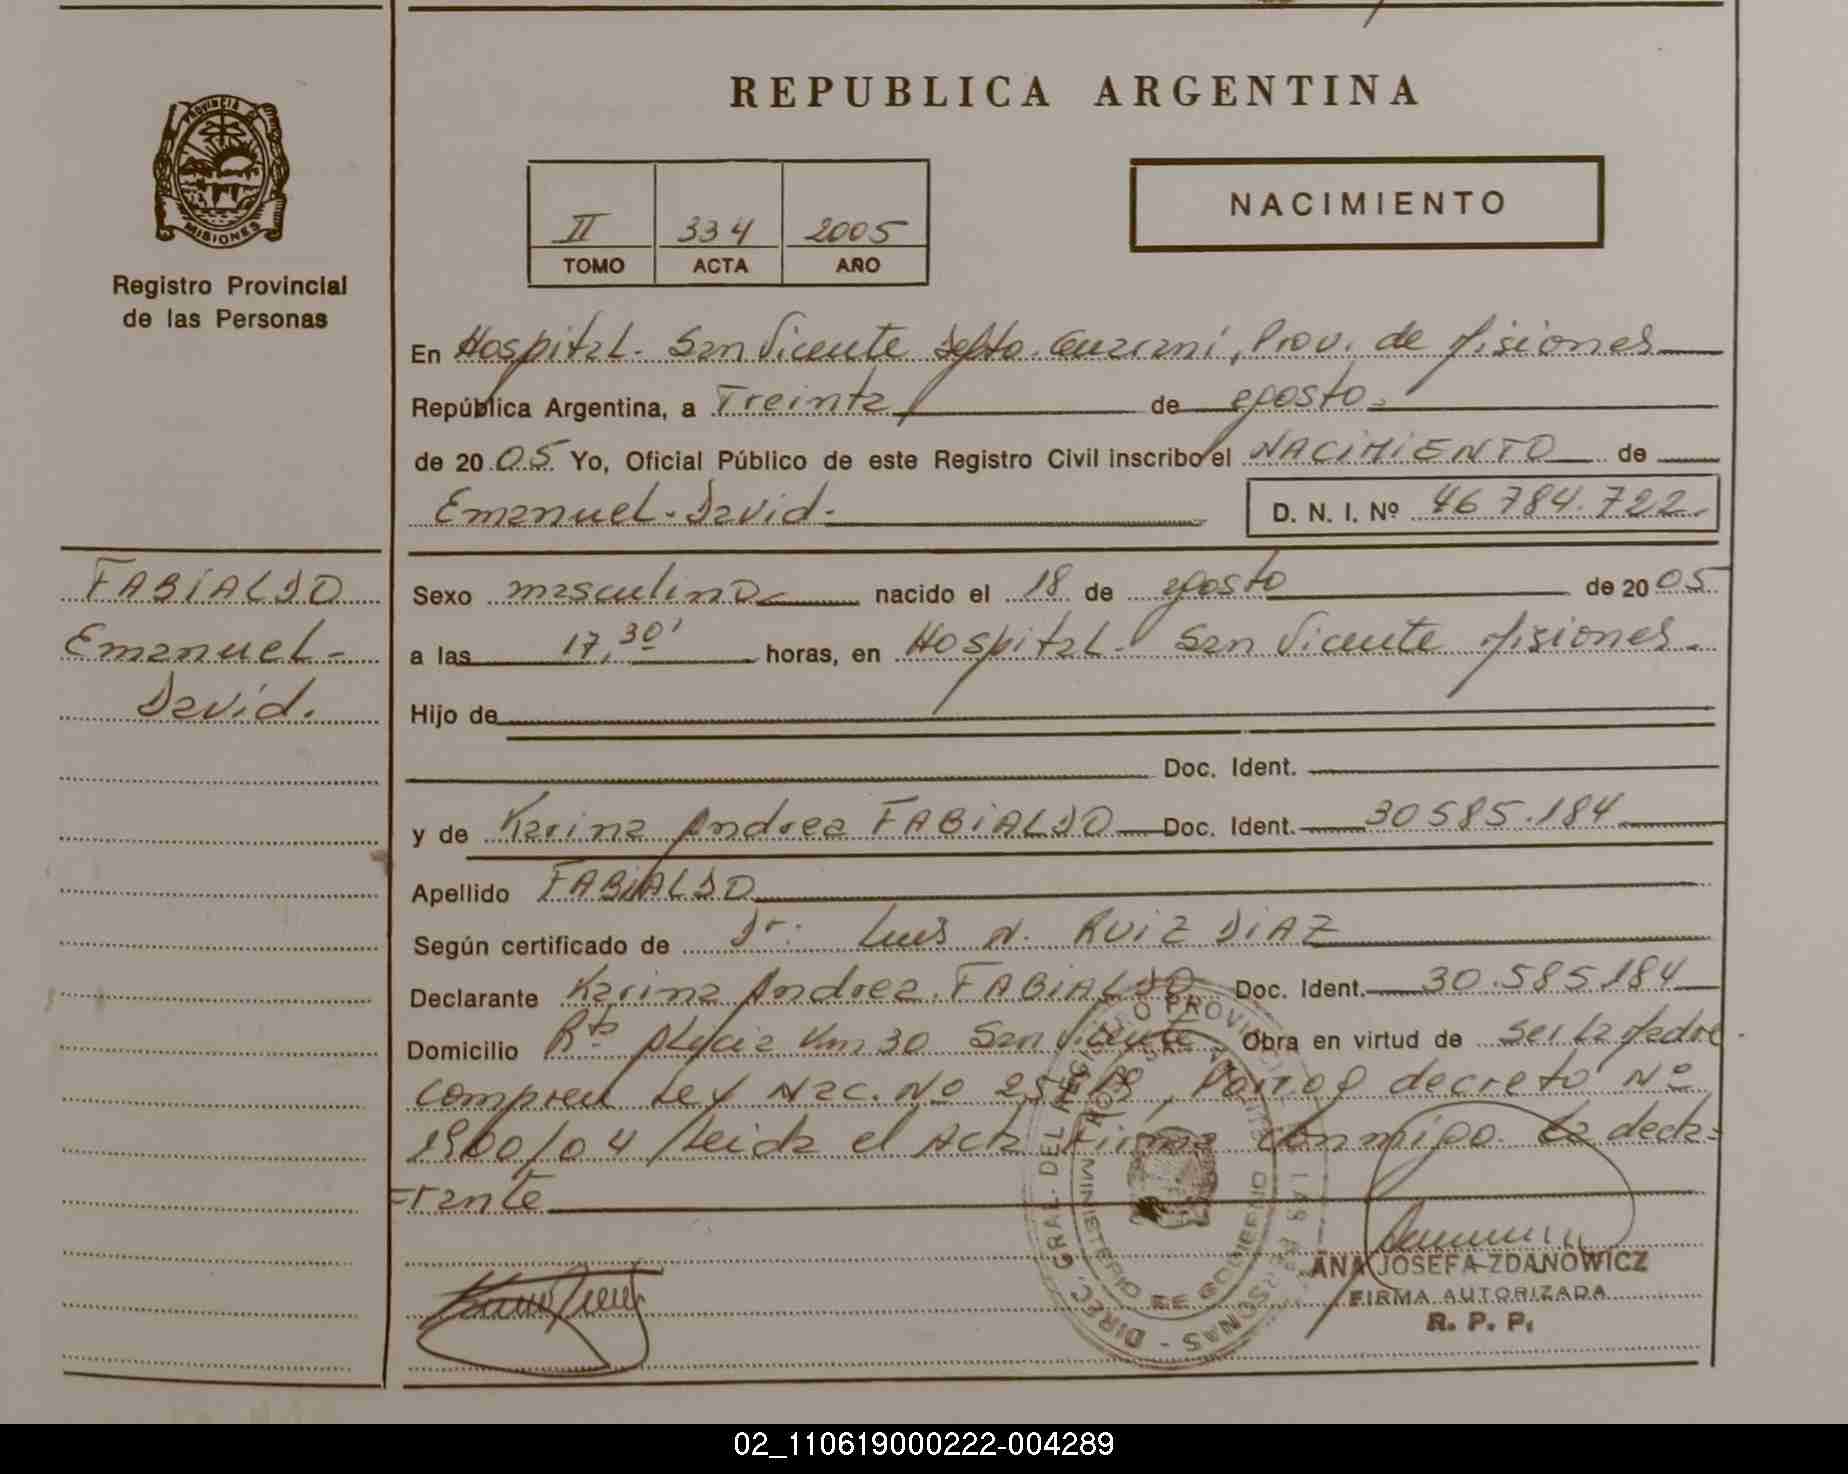 REPUBLICA ARGENTINA
PROVINCIA DE
MISIONES
Registro Provincial
de las Personas
II 334 2005
TOMO ACTA AÑO
NACIMIENTO
En Hospital - San Vicente Depto. Guarani, Prov. de Misiones
República Argentina, a Treinta de agosto.
de 2005 Yo, Oficial Público de este Registro Civil inscribo el NACIMIENTO de
Emanuel - David.
D. N. I. Nº 46 784.722.
FABIALDO
Emanuel -
David.
Sexo masculino nacido el 18 de agosto de 2005
a las 17,30' horas, en Hospital - San Vicente Misiones.
Hijo de
Doc. Ident.
y de Karina Andrea FABIALDO Doc. Ident. 30585.184
Apellido FABIALDO
Según certificado de Dr. Luis N. RUIZ DIAZ
Declarante Karina Andrea FABIALDO Doc. Ident. 30.585.184
Domicilio Km 30 San Vicente Obra en virtud de ser la Madre
Ley Nac. Nº decreto Nº
1900/04 Leida el Acta Firma conmigo la decla-
rante
DIREC. GRAL. DEL REGISTRO PROVINCIAL DE LAS PERSONAS
MINISTERIO DE GOBIERNO
ANA JOSEFA ZDANOWICZ
FIRMA AUTORIZADA
R. P. P.
02_110619000222-004289